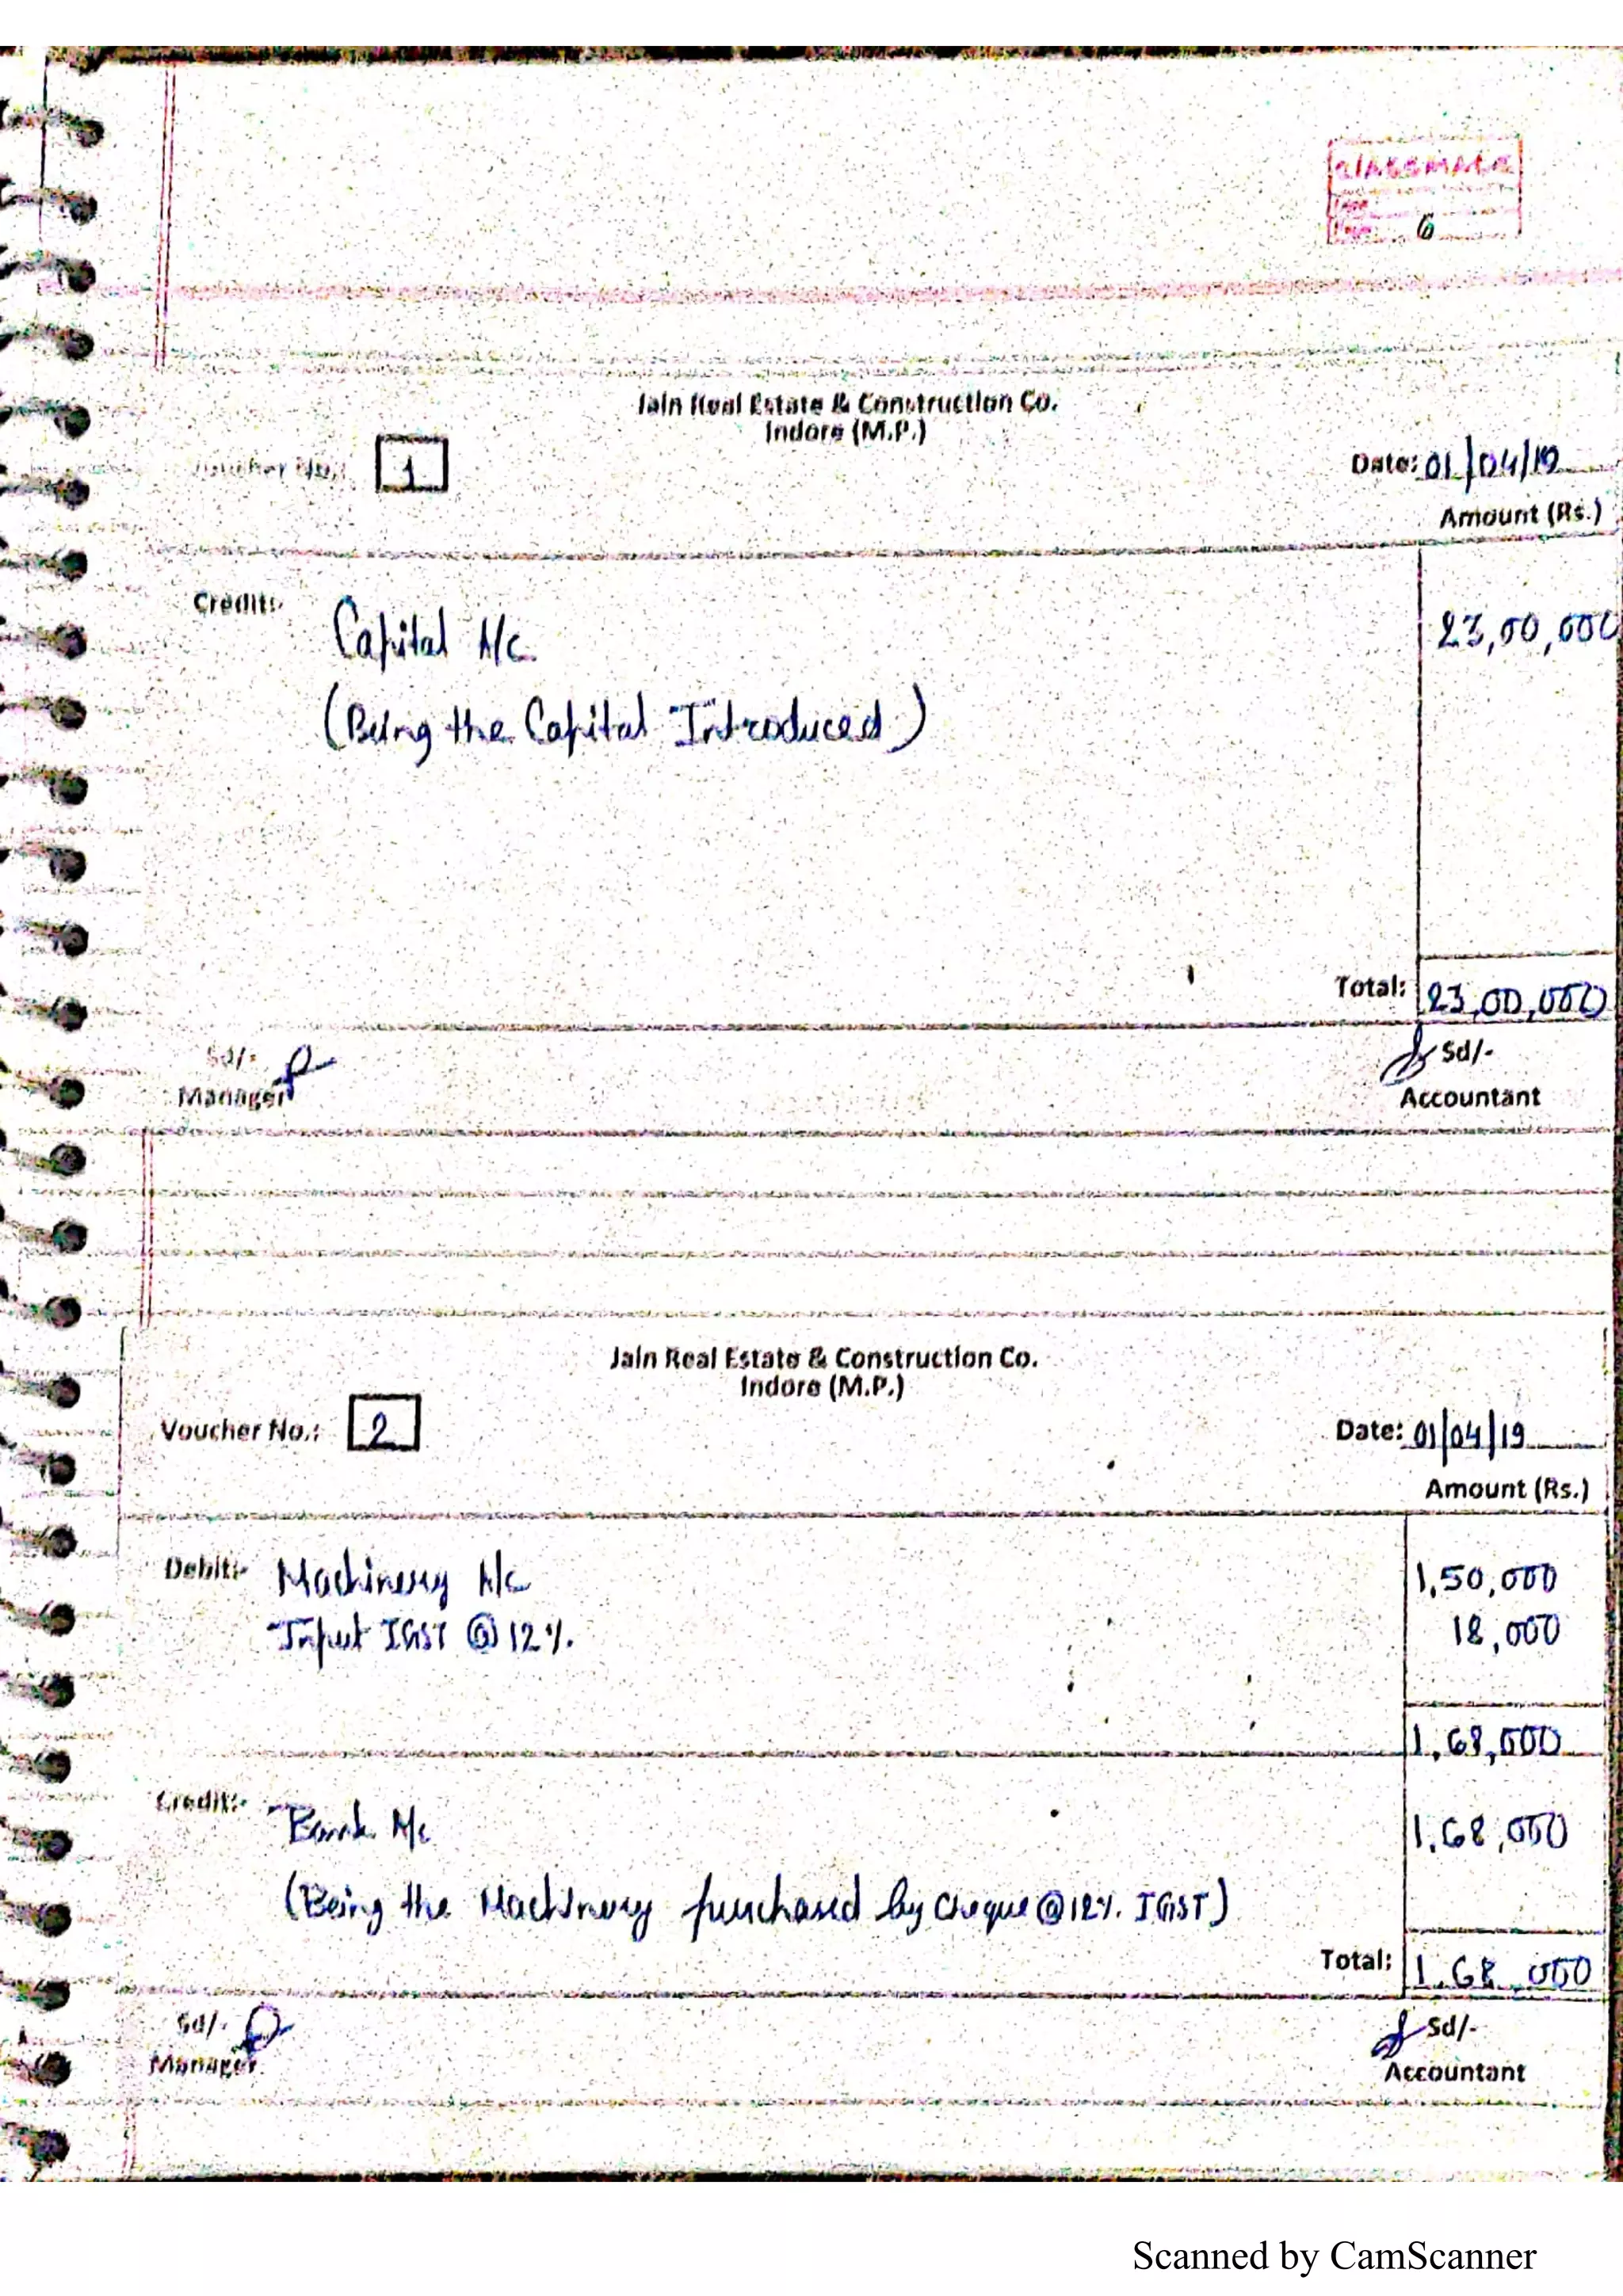 classmate
6
Jain Real Estate & Construction Co.
Indore (M.P.)
Voucher No.: 1
Date: 01/04/19
Amount (Rs.)
Credit:-
Capital A/c
23,00,000
(Being the Capital Introduced)
Total: 23,00,000
Sd/-
Sd/-
Manager
Accountant
Jain Real Estate & Construction Co.
Indore (M.P.)
Voucher No.: 2
Date: 01/04/19
Amount (Rs.)
Debit:- Machinery A/c 1,50,000
Input IGST @ 12% 18,000
1,68,000
Credit:- Bank A/c 1,68,000
(Being the Machinery purchased by Cheque @ 12% IGST)
Total: 1,68,000
Sd/-
Sd/-
Manager
Accountant
Scanned by CamScanner